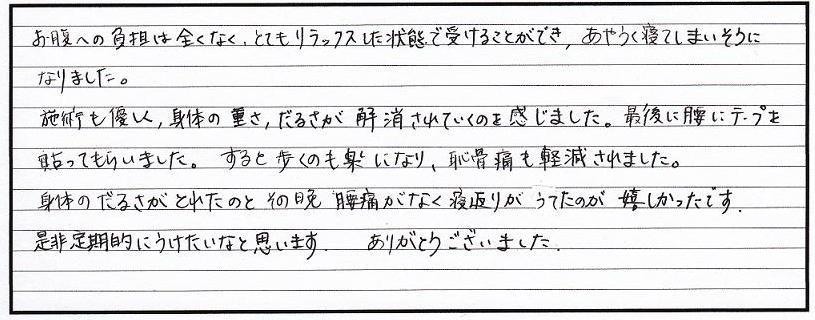 お腹への負担は全くなく、とてもリラックスした状態で受けることができ、あやうく寝てしまいそうに
なりました。
施術も優しく、身体の重さ、だるさが解消されていくのを感じました。最後に腰にテープを
貼ってもらいました。すると歩くのも楽になり、恥骨痛も軽減されました。
身体のだるさがとれたのとその晩腰痛がなく寝返りがうてたのが嬉しかったです。
是非定期的にうけたいなと思います。ありがとうございました。